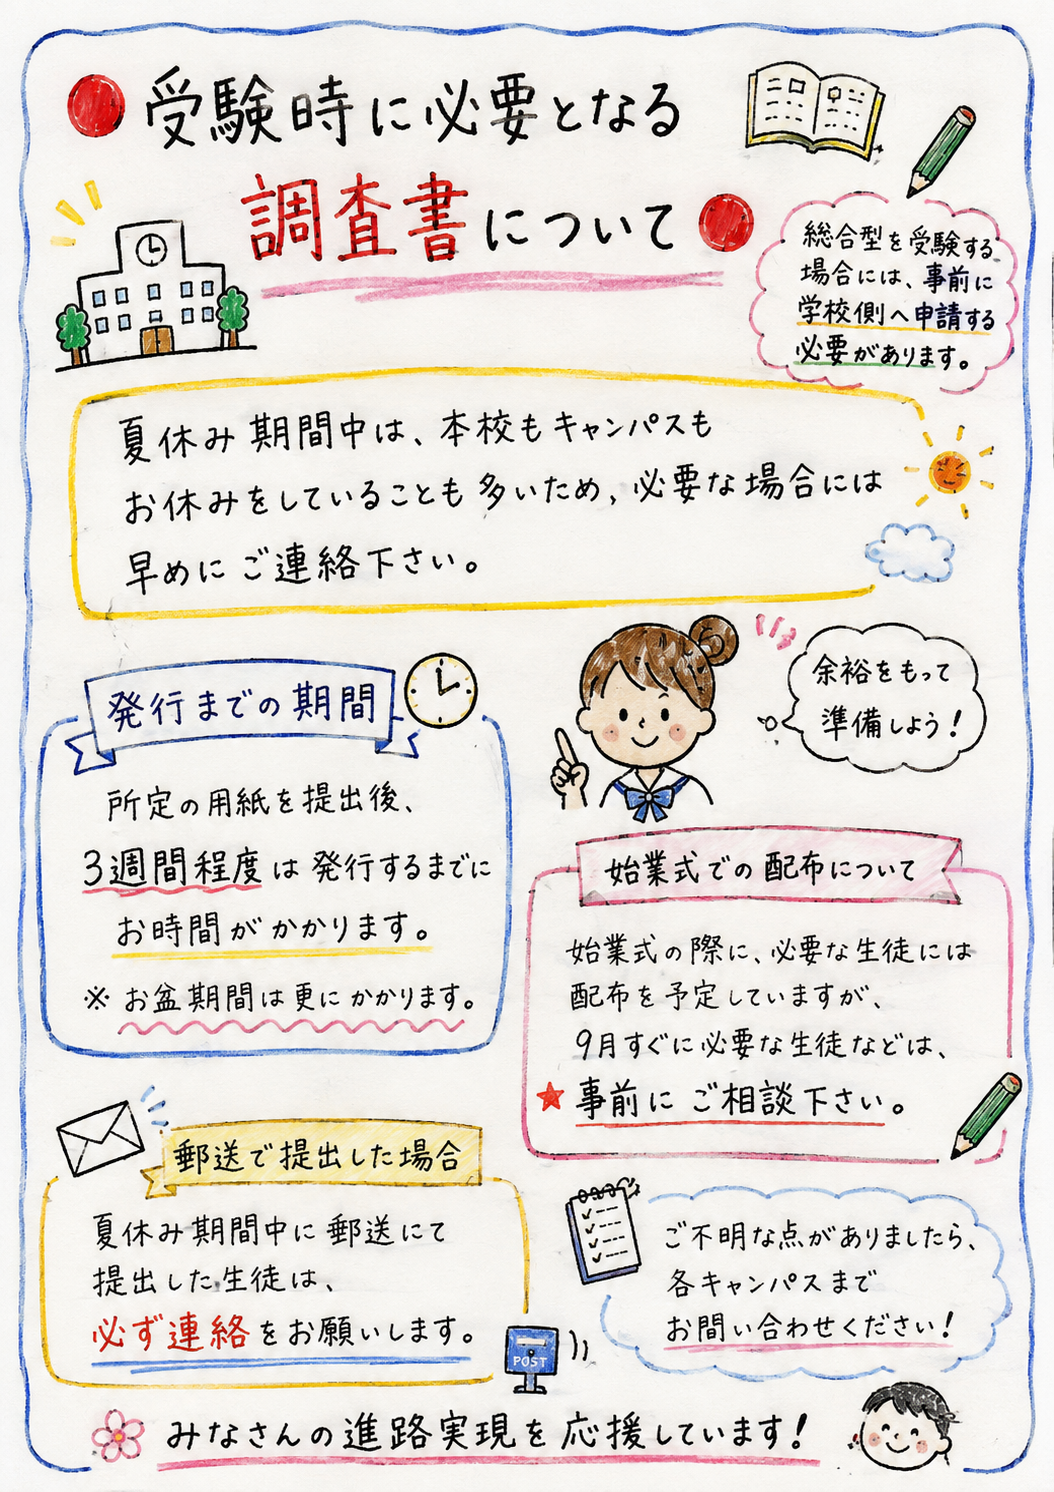 受験時に必要となる
調査書について
総合型を受験する
場合には、事前に
学校側へ申請する
必要があります。
夏休み期間中は、本校もキャンパスも
お休みをしていることも多いため、必要な場合には
早めにご連絡下さい。
余裕をもって
準備しよう！
発行までの期間
所定の用紙を提出後、
3週間程度は発行するまでに
お時間がかかります。
※お盆期間は更にかかります。
始業式での配布について
始業式の際に、必要な生徒には
配布を予定していますが、
9月すぐに必要な生徒などは、
★事前にご相談下さい。
郵送で提出した場合
夏休み期間中に郵送にて
提出した生徒は、
必ず連絡をお願いします。
POST
ご不明な点がありましたら、
各キャンパスまで
お問い合わせください！
みなさんの進路実現を応援しています！